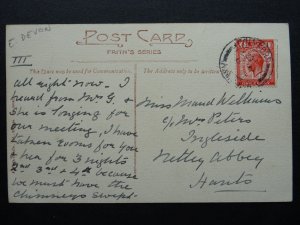 E. DEVON
POST CARD
FRITH'S SERIES
This Space may be used for Communication.
The Address only to be written
III
All right now. I
heard from Mrs G. &
she is longing for
our meeting, I have
taken rooms for you
& her for 3 nights
2nd 3rd & 4th because
we must have the
chimneys swept.
Miss Maud Williams
c/o Mrs Peters
Ingleside
Netley Abbey
Hants